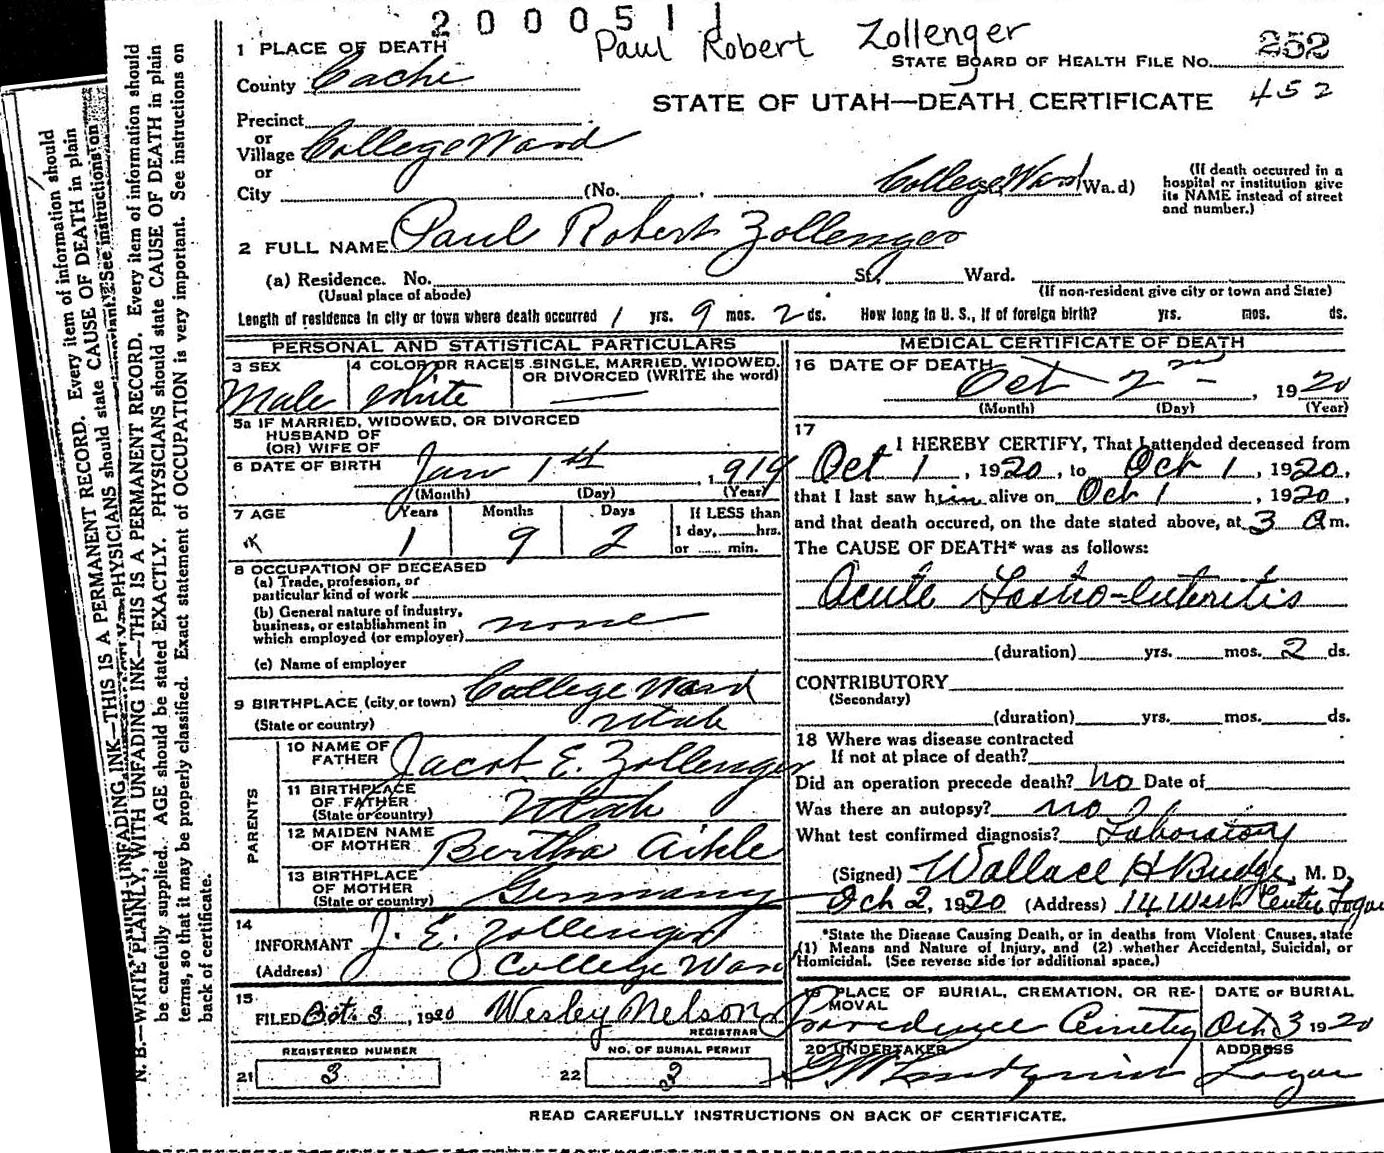 2000511
Paul Robert Zollenger
1 PLACE OF DEATH
STATE BOARD OF HEALTH FILE NO. 252
County Cache
STATE OF UTAH—DEATH CERTIFICATE 452
Precinct
or
Village College Ward
or
City (No. , College Ward Wa.d)
(If death occurred in a hospital or institution give its NAME instead of street and number.)
2 FULL NAME Paul Robert Zollenger
(a) Residence. No. St., Ward.
(Usual place of abode) (If non-resident give city or town and State)
Length of residence in city or town where death occurred 1 yrs. 9 mos. 2 ds. How long in U. S., if of foreign birth? yrs. mos. ds.
PERSONAL AND STATISTICAL PARTICULARS
3 SEX Male
4 COLOR OR RACE White
5 SINGLE, MARRIED, WIDOWED, OR DIVORCED (WRITE the word) —
5a IF MARRIED, WIDOWED, OR DIVORCED
HUSBAND OF
(OR) WIFE OF
6 DATE OF BIRTH Jan 1st, 1919
(Month) (Day) (Year)
7 AGE Years Months Days If LESS than
1 9 2 1 day, hrs.
or min.
8 OCCUPATION OF DECEASED
(a) Trade, profession, or
particular kind of work
(b) General nature of industry,
business, or establishment in
which employed (or employer) none
(c) Name of employer
9 BIRTHPLACE (city or town) College Ward
(State or country) Utah
PARENTS
10 NAME OF FATHER Jacob E. Zollenger
11 BIRTHPLACE OF FATHER (State or country) Utah
12 MAIDEN NAME OF MOTHER Bertha
13 BIRTHPLACE OF MOTHER (State or country) Germany
14
INFORMANT J. E. Zollenger
(Address) College Ward
15
FILED Oct. 3, 1920 Wesley Nelson
REGISTRAR
REGISTERED NUMBER
21 3
NO. OF BURIAL PERMIT
22 3
MEDICAL CERTIFICATE OF DEATH
16 DATE OF DEATH Oct 2nd, 1920
(Month) (Day) (Year)
17
I HEREBY CERTIFY, That I attended deceased from
Oct 1, 1920, to Oct 1, 1920,
that I last saw him alive on Oct 1, 1920,
and that death occured, on the date stated above, at 3 a m.
The CAUSE OF DEATH* was as follows:
Acute Gastro-enteritis
(duration) yrs. mos. 2 ds.
CONTRIBUTORY
(Secondary)
(duration) yrs. mos. ds.
18 Where was disease contracted
If not at place of death?
Did an operation precede death? no Date of
Was there an autopsy? no
What test confirmed diagnosis? Laboratory
(Signed) Wallace H Budge, M. D.
Oct 2, 1920 (Address) 14 West Center Logan
*State the Disease Causing Death, or in deaths from Violent Causes, state
(1) Means and Nature of Injury, and (2) whether Accidental, Suicidal, or
Homicidal. (See reverse side for additional space.)
19 PLACE OF BURIAL, CREMATION, OR REMOVAL
DATE OF BURIAL
Providence Cemetery Oct 3 1920
20 UNDERTAKER
ADDRESS
Logan
READ CAREFULLY INSTRUCTIONS ON BACK OF CERTIFICATE.
N. B.—WRITE PLAINLY, WITH UNFADING INK—THIS IS A PERMANENT RECORD. Every item of information should
be carefully supplied. AGE should be stated EXACTLY. PHYSICIANS should state CAUSE OF DEATH in plain
terms, so that it may be properly classified. Exact statement of OCCUPATION is very important. See instructions on
back of certificate.